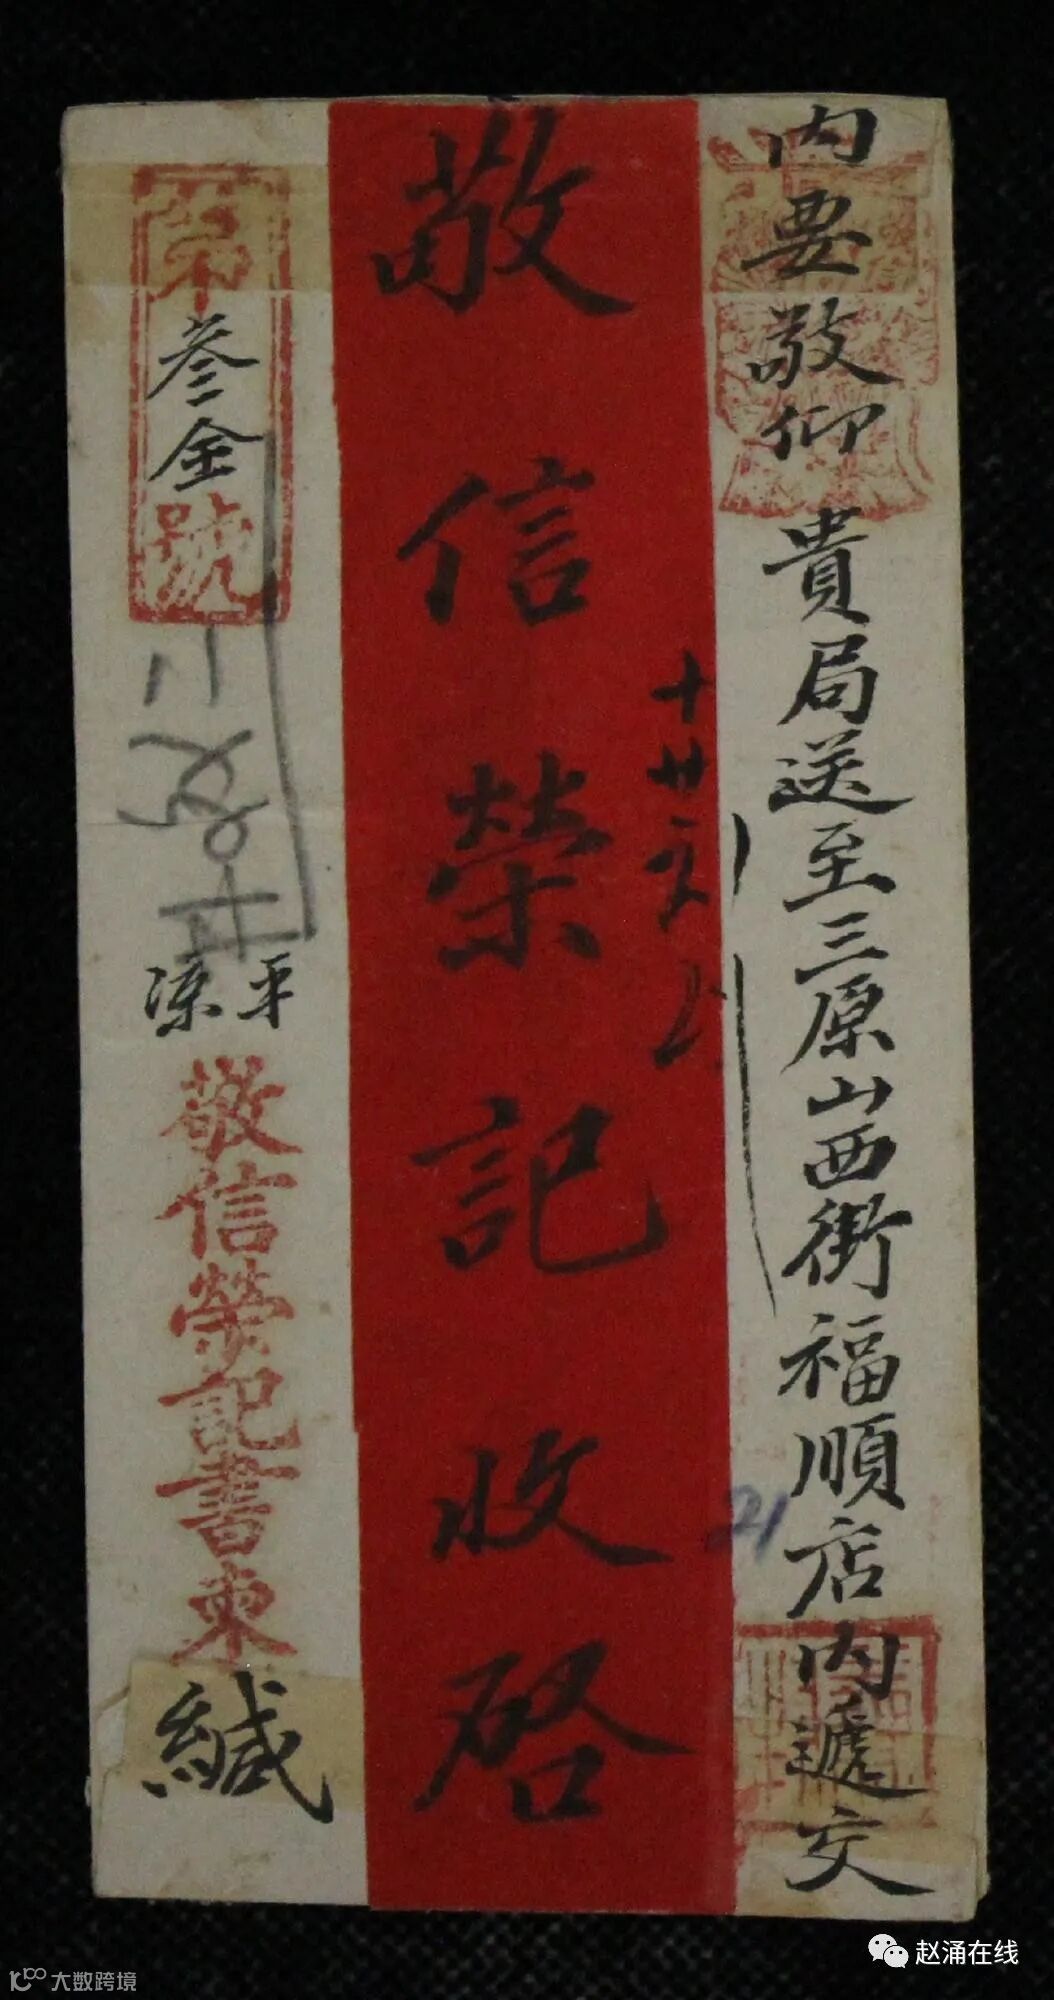 内要敬仰 貴局送至三原山西街福順店内遞交
敬信榮記收啓
十廿
21
第叁全號
平涼
敬信榮記書柬
緘
赵涌在线
大数跨境